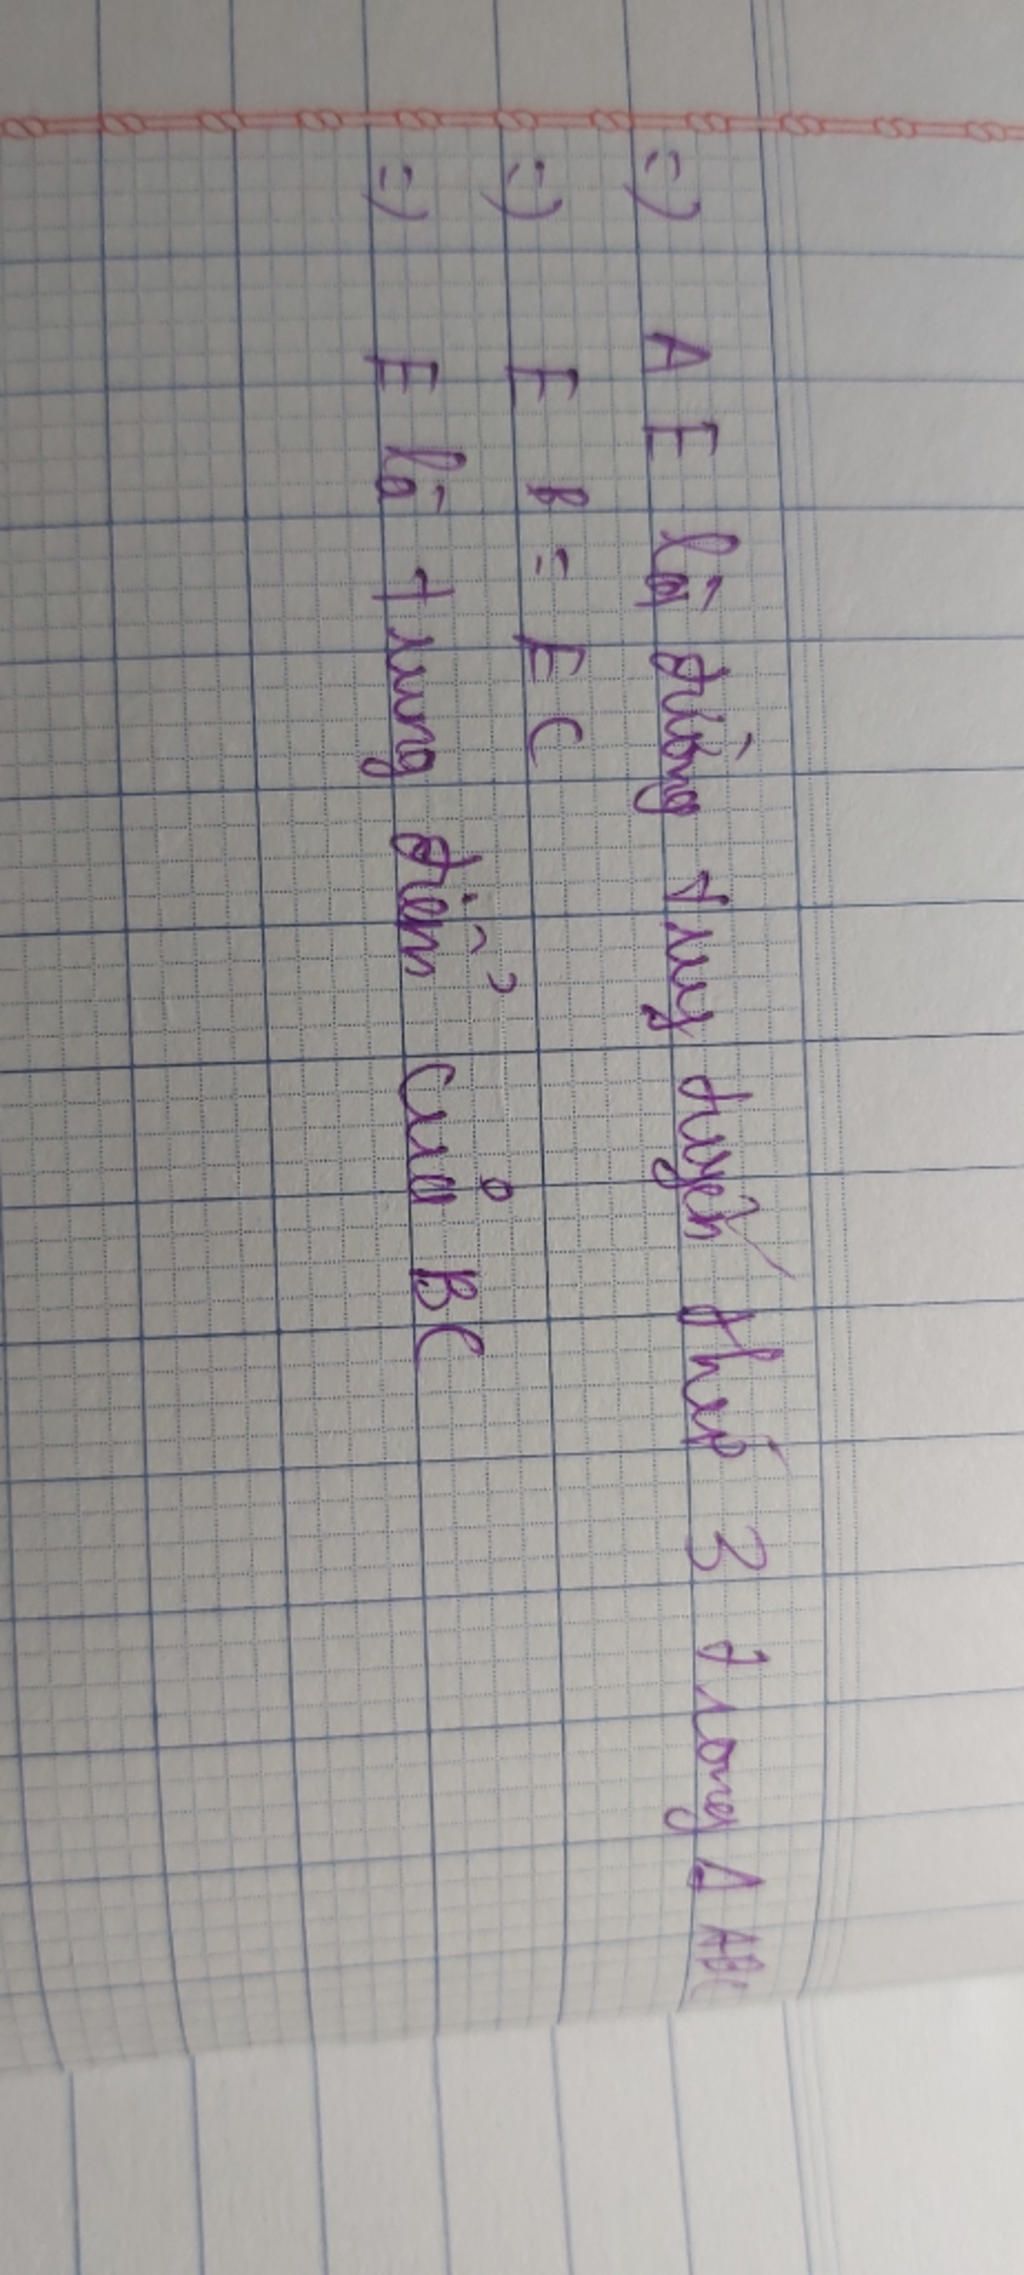 =) AE là đường truy tuyến thứ 3 trong Δ ABC
=) EB = EC
=) E là trung điểm của BC